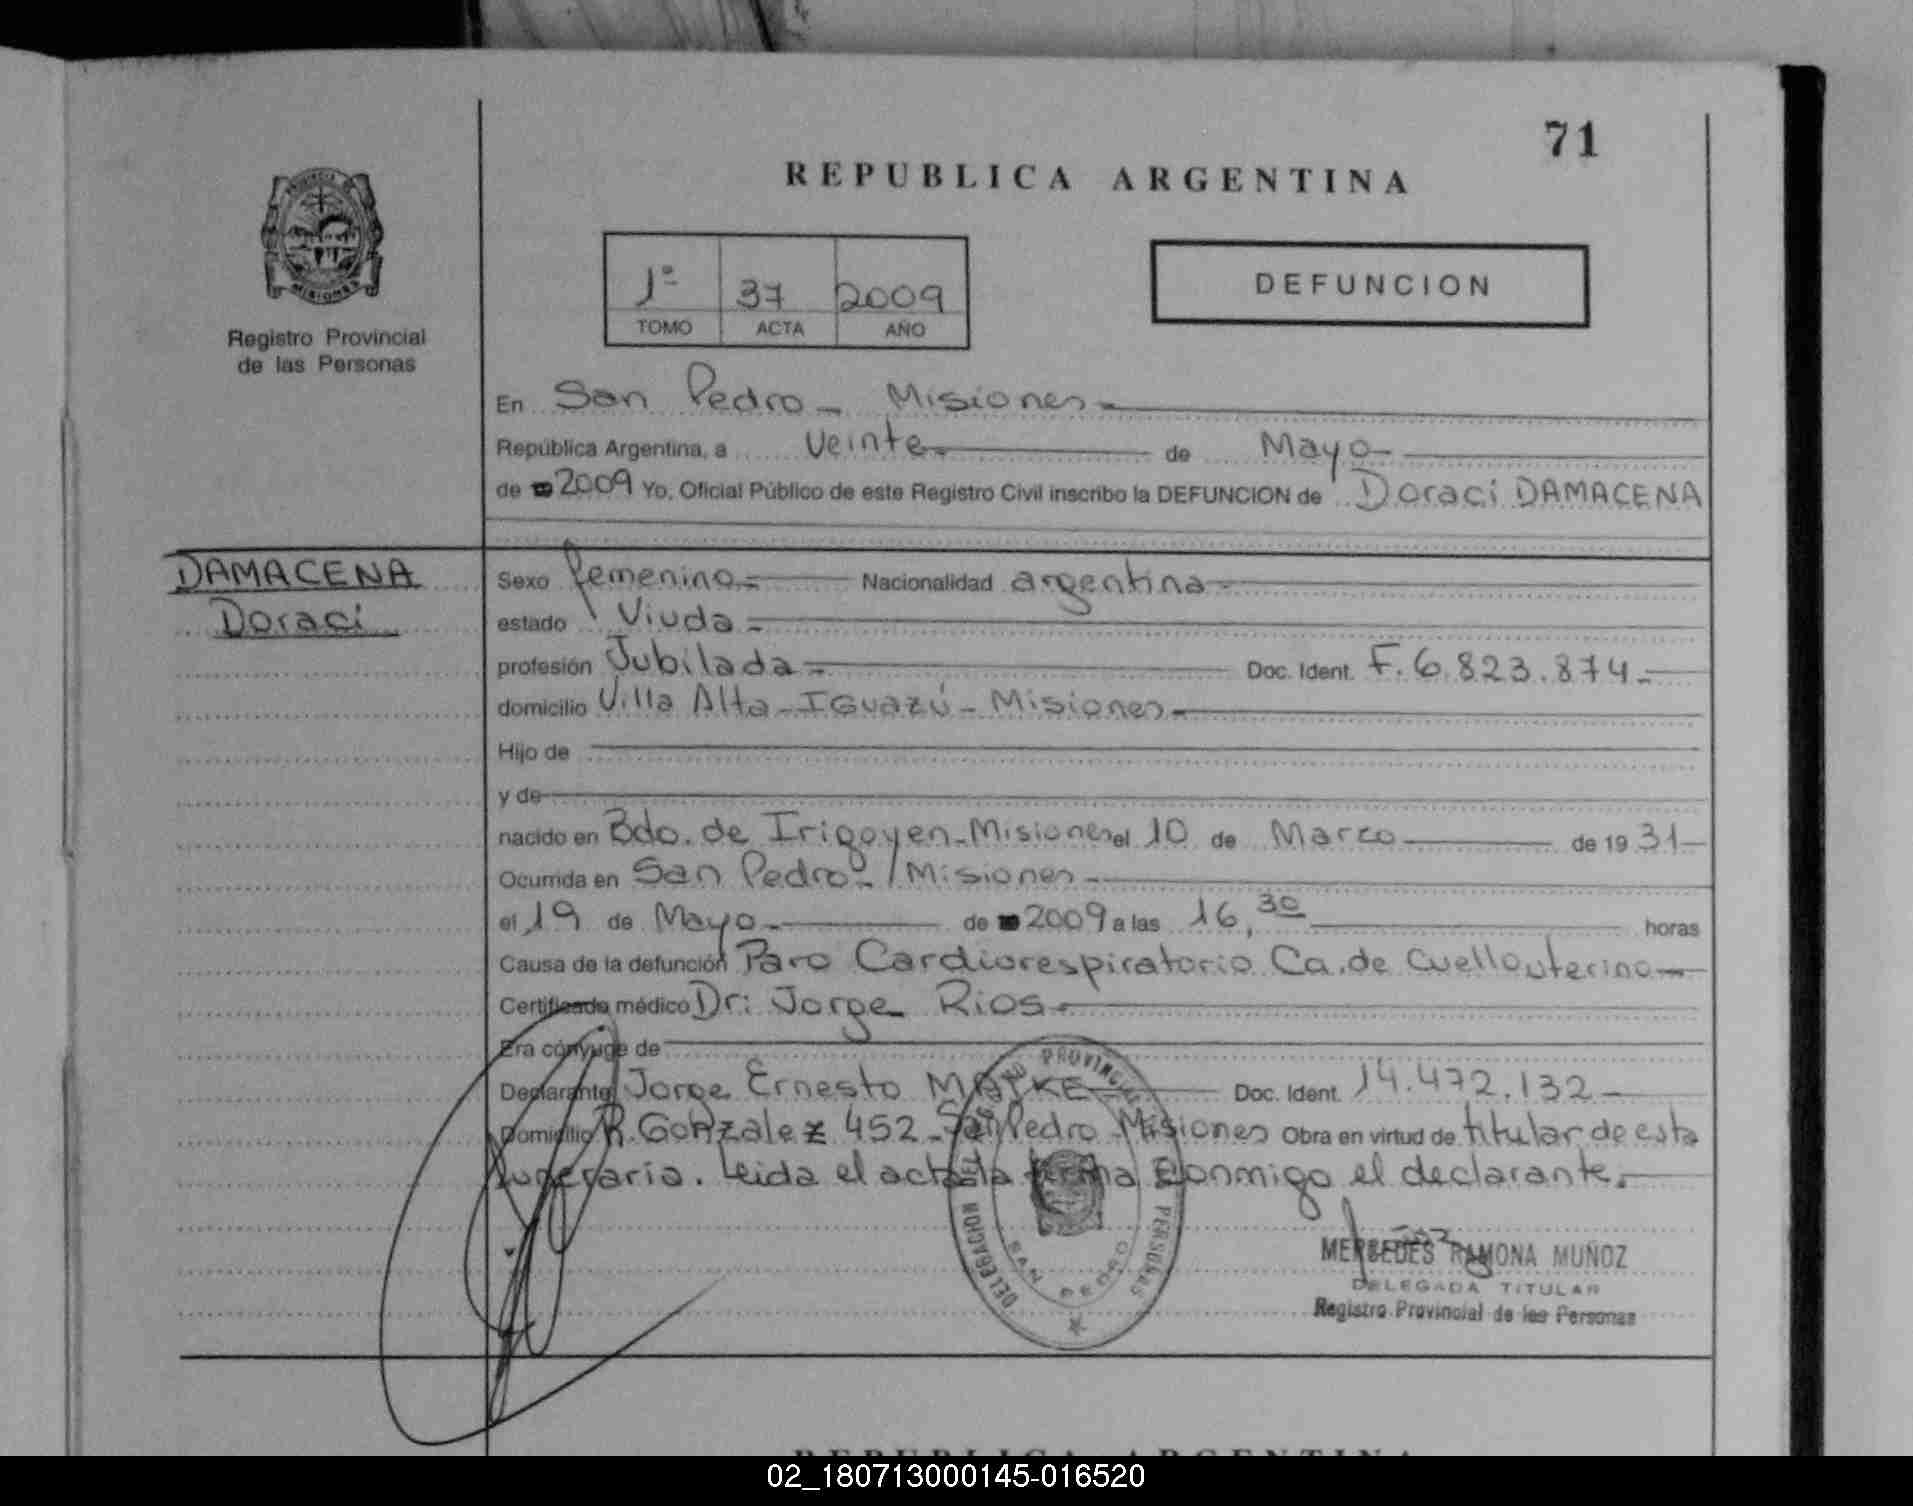 71
REPUBLICA ARGENTINA
PROVINCIA DE
MISIONES
Registro Provincial
de las Personas
1º 37 2009
TOMO ACTA AÑO
DEFUNCION
En San Pedro - Misiones
República Argentina, a Veinte de Mayo
de 2009 Yo, Oficial Público de este Registro Civil inscribo la DEFUNCION de Doraci DAMACENA
DAMACENA
Doraci
Sexo femenino Nacionalidad argentina
estado Viuda
profesión Jubilada Doc. Ident. F. 6.823.874
domicilio Villa Alta - IGuazú - Misiones
Hijo de
y de
nacido en Bdo. de Irigoyen - Misiones el 10 de Marzo de 19 31
Ocurrida en San Pedro - Misiones
el 19 de Mayo de 2009 a las 16,30 horas
Causa de la defunción Paro Cardiorespiratorio Ca. de Cuello uterino
Certificado médico Dr: Jorge Rios
Era cónyuge de
Declarante Jorge Ernesto MATKE Doc. Ident. 14.472.132
Domicilio R. Gonzalez 452 - San Pedro - Misiones Obra en virtud de titular de esta
funeraria. Leida el acta la firma conmigo el declarante.
DELEGACION DEL REGISTRO PROVINCIAL DE LAS PERSONAS
SAN PEDRO
MERCEDES RAMONA MUÑOZ
DELEGADA TITULAR
Registro Provincial de las Personas
REPUBLICA ARGENTINA
02_180713000145-016520